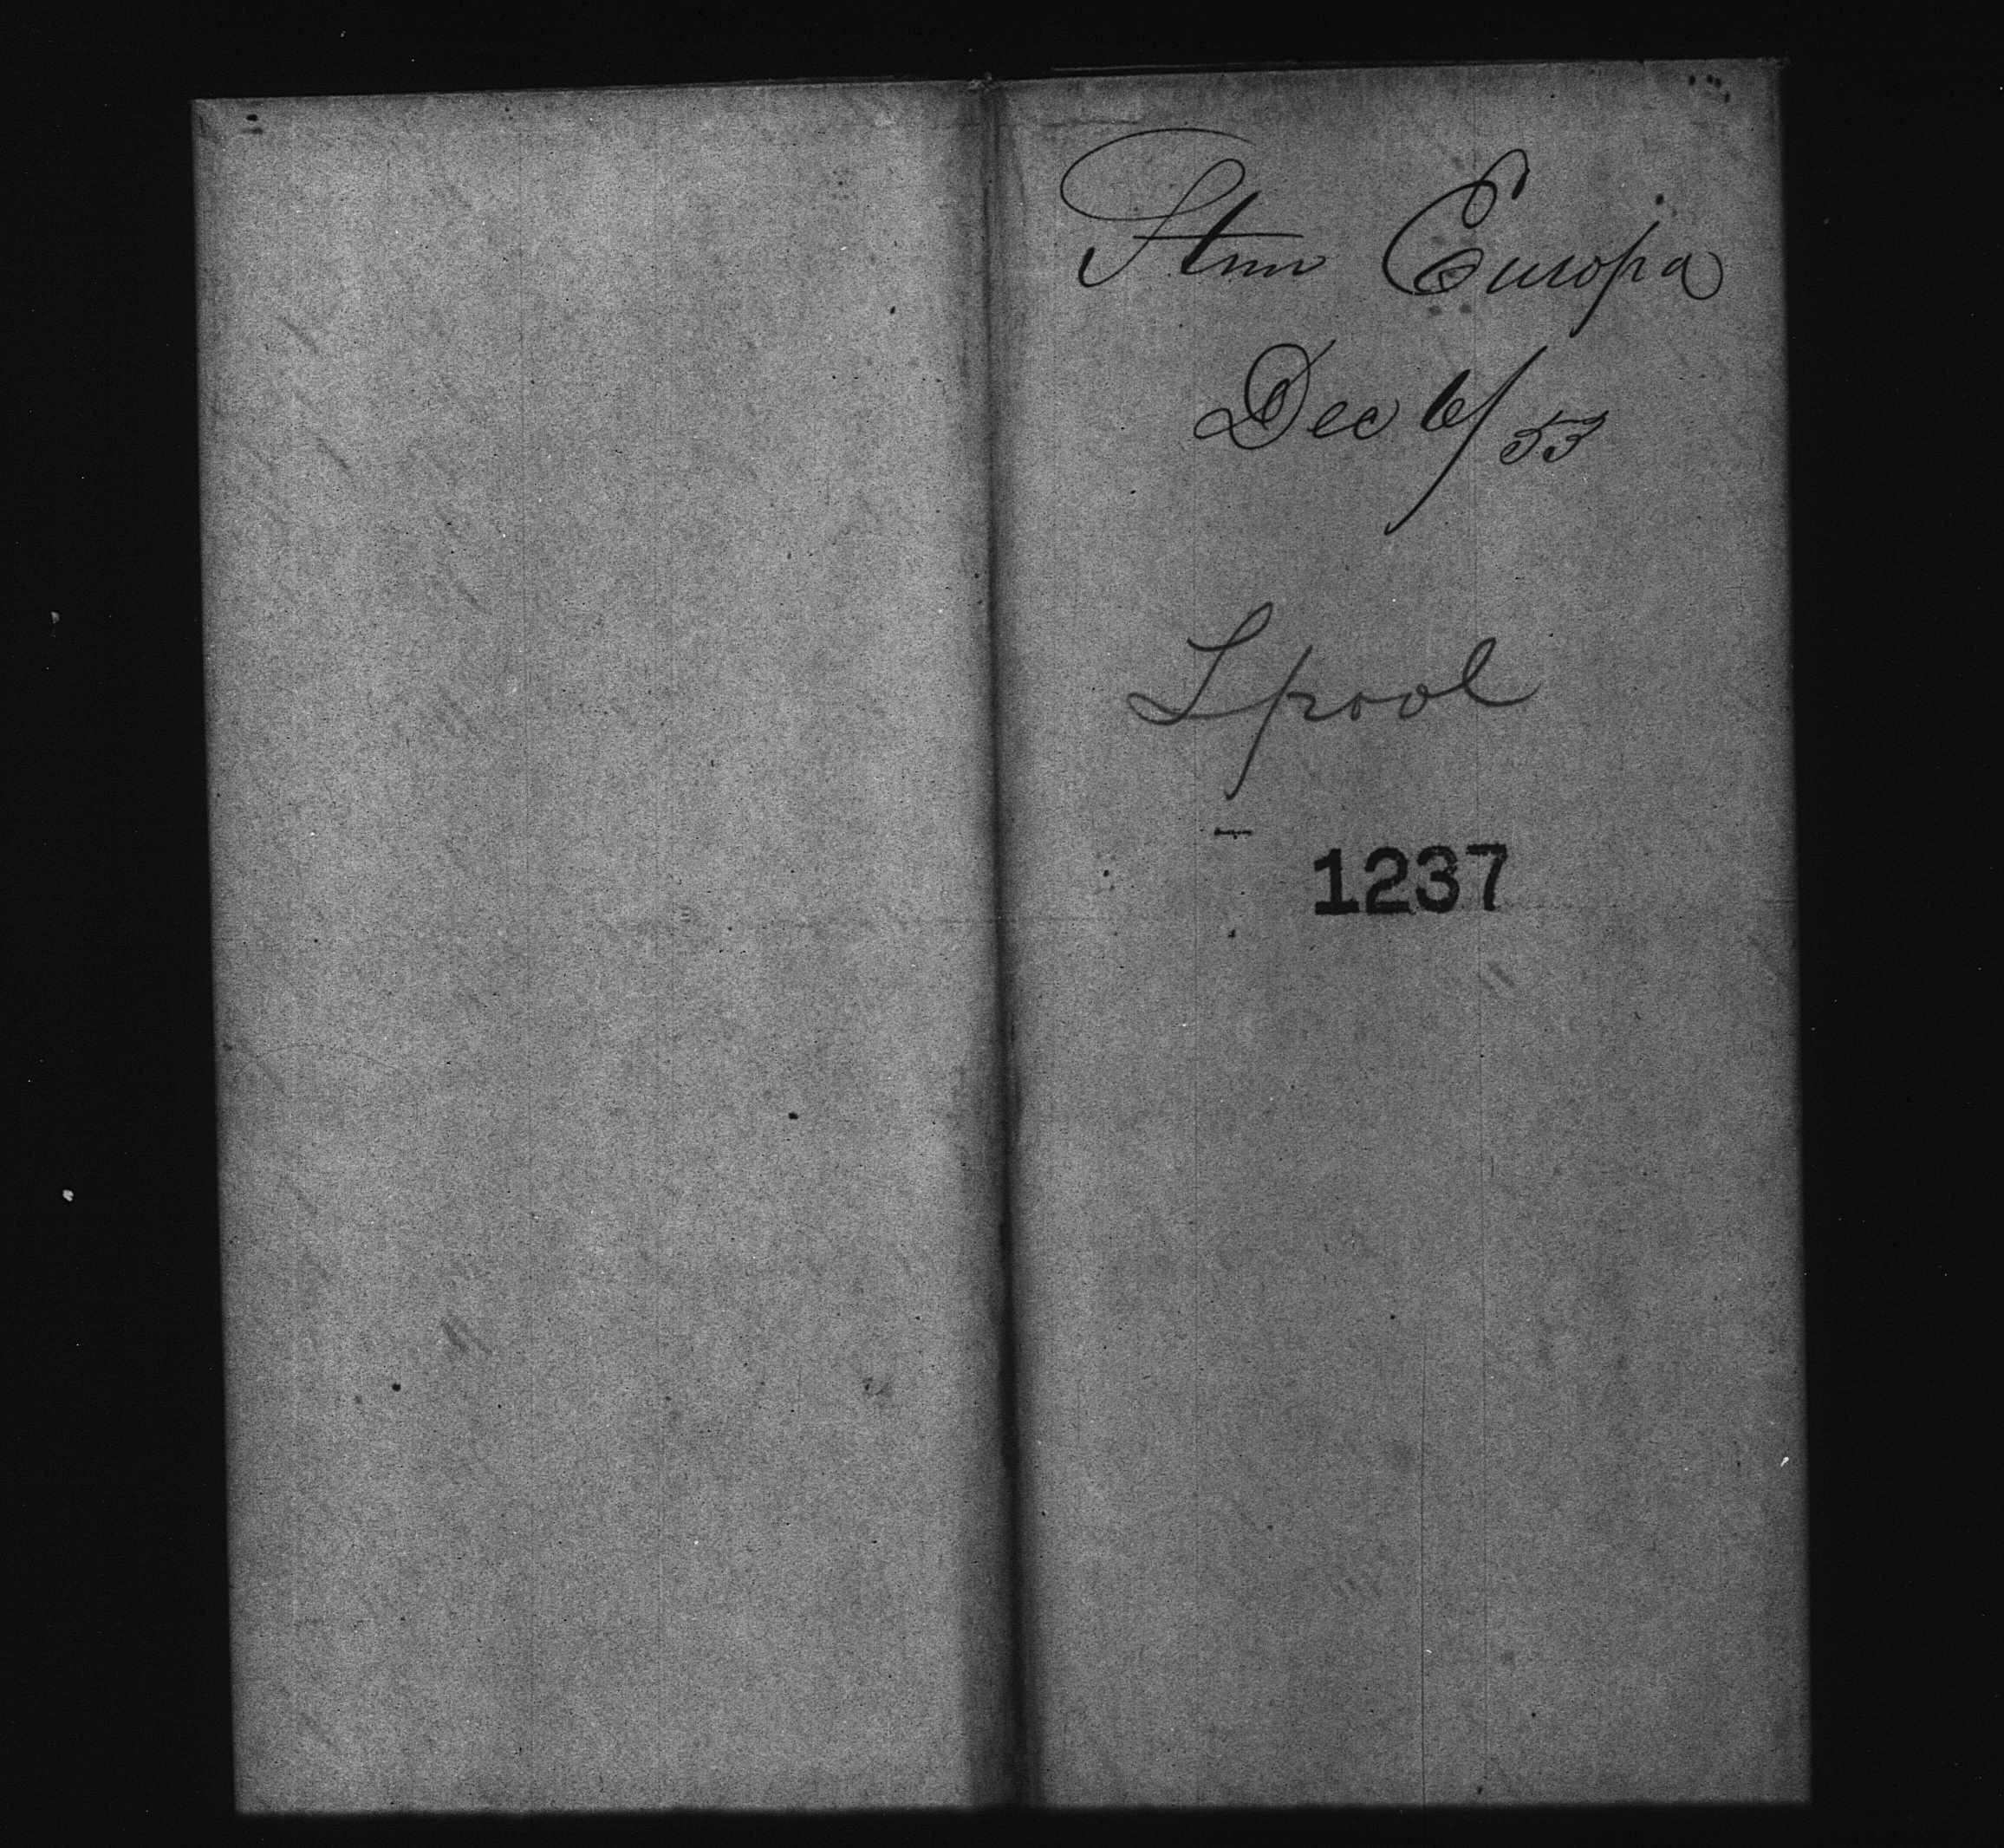 Stmr Europa
Dec 6/53
Lpool
1237